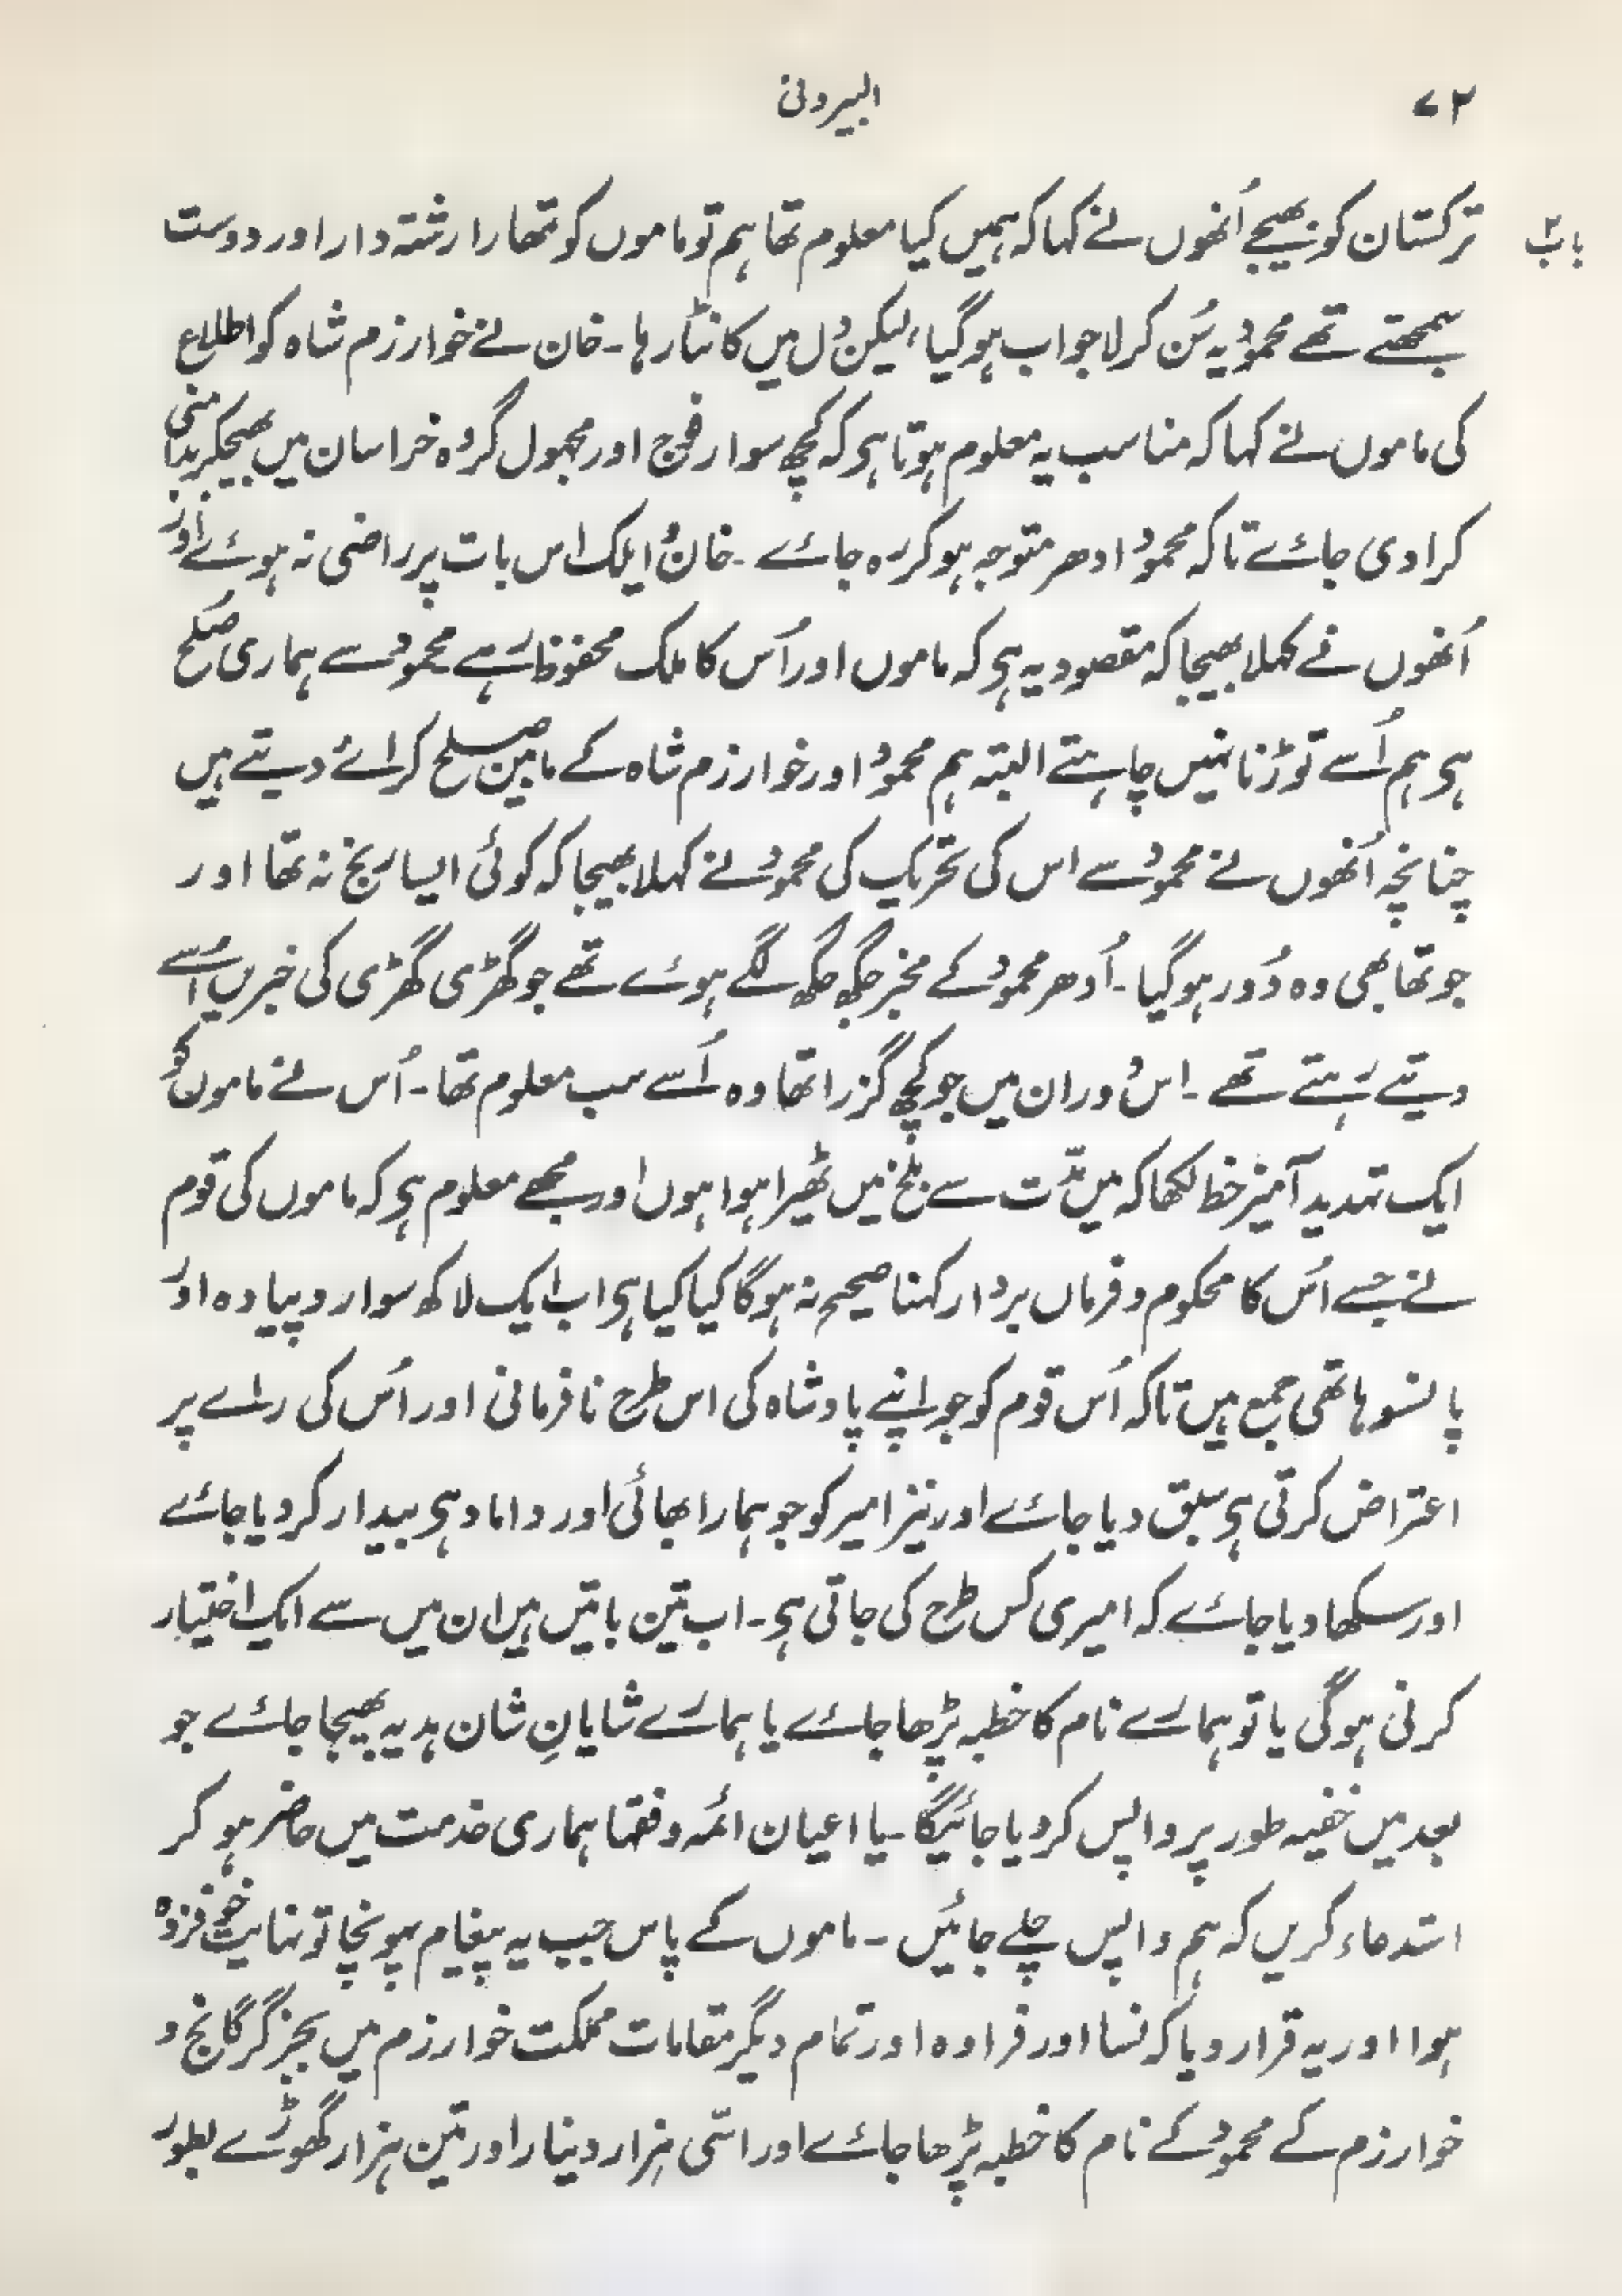 ۷۲
البیرونی
باب ۲
ترکستان کو بھیجے اُنھوں نے کہا کہ ہمیں کیا معلوم تھا ہم تو ماموں کو تمھارا رشتہ دار اور دوست
سمجھتے تھے محمود یہ سُن کر لاجواب ہوگیا، لیکن دل میں کانٹا رہا۔ خان نے خوارزم شاہ کو اطلاع
کی ماموں نے کہا کہ مناسب یہ معلوم ہوتا ہی کہ کچھ سوار فوج اور مجہول گروہ خراسان میں بھیجکر بدامنی
کرا دی جائے تاکہ محمود ادھر متوجہ ہوکر رہ جائے۔ خان و ایلک اس بات پر راضی نہ ہوئے اور
اُنھوں نے کہلا بھیجا کہ مقصود یہ ہی کہ ماموں اور اُس کا ملک محفوظ رہے محمود سے ہماری صلح
ہی ہم اُسے توڑنا نہیں چاہتے البتہ ہم محمود اور خوارزم شاہ کے مابین صلح کرائے دیتے ہیں
چنانچہ اُنھوں نے محمود سے اس کی تحریک کی محمود نے کہلا بھیجا کہ کوئی ایسا رنج نہ تھا اور
جو تھا بھی وہ دُور ہوگیا۔ اُدھر محمود کے مخبر جگہ جگہ لگے ہوئے تھے جو گھڑی گھڑی کی خبریں اُسے
دیتے رہتے تھے۔ اس دوران میں جو کچھ گزرا تھا وہ اُسے سب معلوم تھا۔ اُس نے ماموں کو
ایک تہدید آمیز خط لکھا کہ میں مدّت سے بلخ میں ٹھیرا ہوا ہوں اور مجھے معلوم ہی کہ ماموں کی قوم
نے جسے اُس کا محکوم و فرماں بردار کہنا صحیح نہ ہوگا کیا کیا ہی اب ایک لاکھ سوار و پیادہ اور
پانسو ہاتھی جمع ہیں تاکہ اُس قوم کو جو اپنے پادشاہ کی اس طرح نافرمانی اور اُس کی رائے پر
اعتراض کرتی ہی سبق دیا جائے اور نیز امیر کو جو ہمارا بھائی اور داماد ہی بیدار کردیا جائے
اور سکھا دیا جائے کہ امیری کس طرح کی جاتی ہی۔ اب تین باتیں ہیں ان میں سے ایک اختیار
کرنی ہوگی یا تو ہمارے نام کا خطبہ پڑھا جائے یا ہمارے شایانِ شان ہدیہ بھیجا جائے جو
بعد میں خفیہ طور پر واپس کردیا جائیگا۔ یا اعیان ائمہ و فقہا ہماری خدمت میں حاضر ہو کر
استدعاء کریں کہ ہم واپس چلے جائیں۔ ماموں کے پاس جب یہ پیغام پہونچا تو نہایت خوفزدہ
ہوا اور یہ قرار دیا کہ نسا اور فراوہ اور تمام دیگر مقامات مملکت خوارزم میں بجز گرگانج و
خوارزم کے محمود کے نام کا خطبہ پڑھا جائے اور اسّی ہزار دینار اور تین ہزار گھوڑے بطور